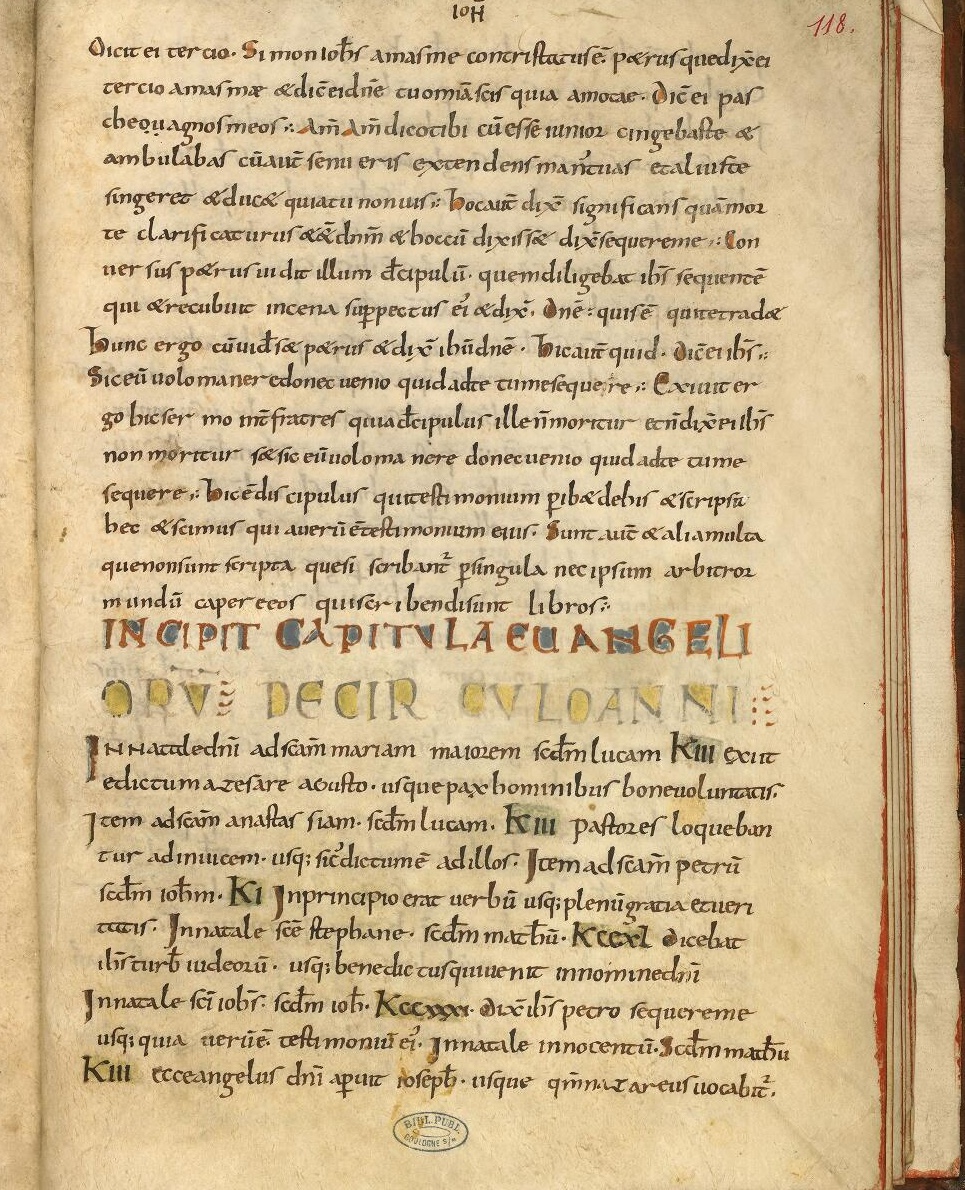 IOH̄
118.
Dicit ei tercio. Simon ioh̄s amasme contristatus ē. pætrus quedix̄ ei
tercio amas mæ & dic̄ ei dn̄e tu om̄ia scis quia amo tæ. Dic̄ ei pas
cheoues agnos meos. Am̄ Am̄ dico tibi cū esse iunior cingebas te &
ambulabas cū aut̄ senu eris extendens man̄ tuas et alius te
singeret & ducæ quia tu non uis. Hoc aut̄ dix̄ significans qua mor
te clarificaturus & & dn̄m & hoc cū dixissæ dix̄ sequere me. Con
uersus pætrus uidit illum d̄cipulū. quem diligebat ih̄s sequentē
qui & recubuit in cena sup̱ pectus ei' & dix̄. Dn̄e. quis ē qui te tradæ
Hunc ergo cū uid̄s& pætrus & dix̄ ih̄u dn̄e. Hic aut̄ quid. Dic̄ ei ih̄s.
Sic eū uolo manere donec uenio quid ad te tu me sequere. Exiuit er
go hic sermo int̄ fratres quia d̄cipulus ille n̄ moritur et n̄ dix̄ ei ih̄s
non moritur sæ sic eū uolo manere donec uenio quid ad te tu me
sequere. Hic ē discipulus qui testimonium p̱ib& de his & scripsit
hec & scimus qui a uerū ē testimonium eius. Sunt aut̄ & alia multa
que non sunt scripta que si scribant᷑ p̱ singula nec ipsum arbitror
mundū caper eeos qui scribendi sunt libros.
INCIPIT CAPITULA EUANGELI
ORV DE CIRCULO ANNI
IN Natale dn̄i ad scām mariam maiorem scd̄m lucam K iii exiit
edictum a cesare agusto. usque pax hominibus bone uoluntatis.
Item ad scām anastassiam. scd̄m lucam. K iii pastores loqueban
tur ad inuicem. usq; sic̄ dictum ē ad illos. Item ad scām petrū
scd̄m ioh̄m. K i In principio erat uerbū usq; plenū gratia et ueri
tatis. In natale scē stephane. scd̄m math̄u. K ccxl Dicebat
ih̄s turb̄ iudeorū. usq; benedictus qui uenit in nomine dn̄i
In natale sc̄i ioh̄s. scd̄m ioh̄. K ccxxxi. dix̄ ih̄s petro sequere me
usq; quia uerū ē. testimoniū ei'. In natale innocentū. Scd̄m math̄u
K iii ecce angelus dn̄i apuit ioseph̄. usque qm̄ nazareus uocabit᷑.
BIBL. PUBL.
BOULOGNE S/M